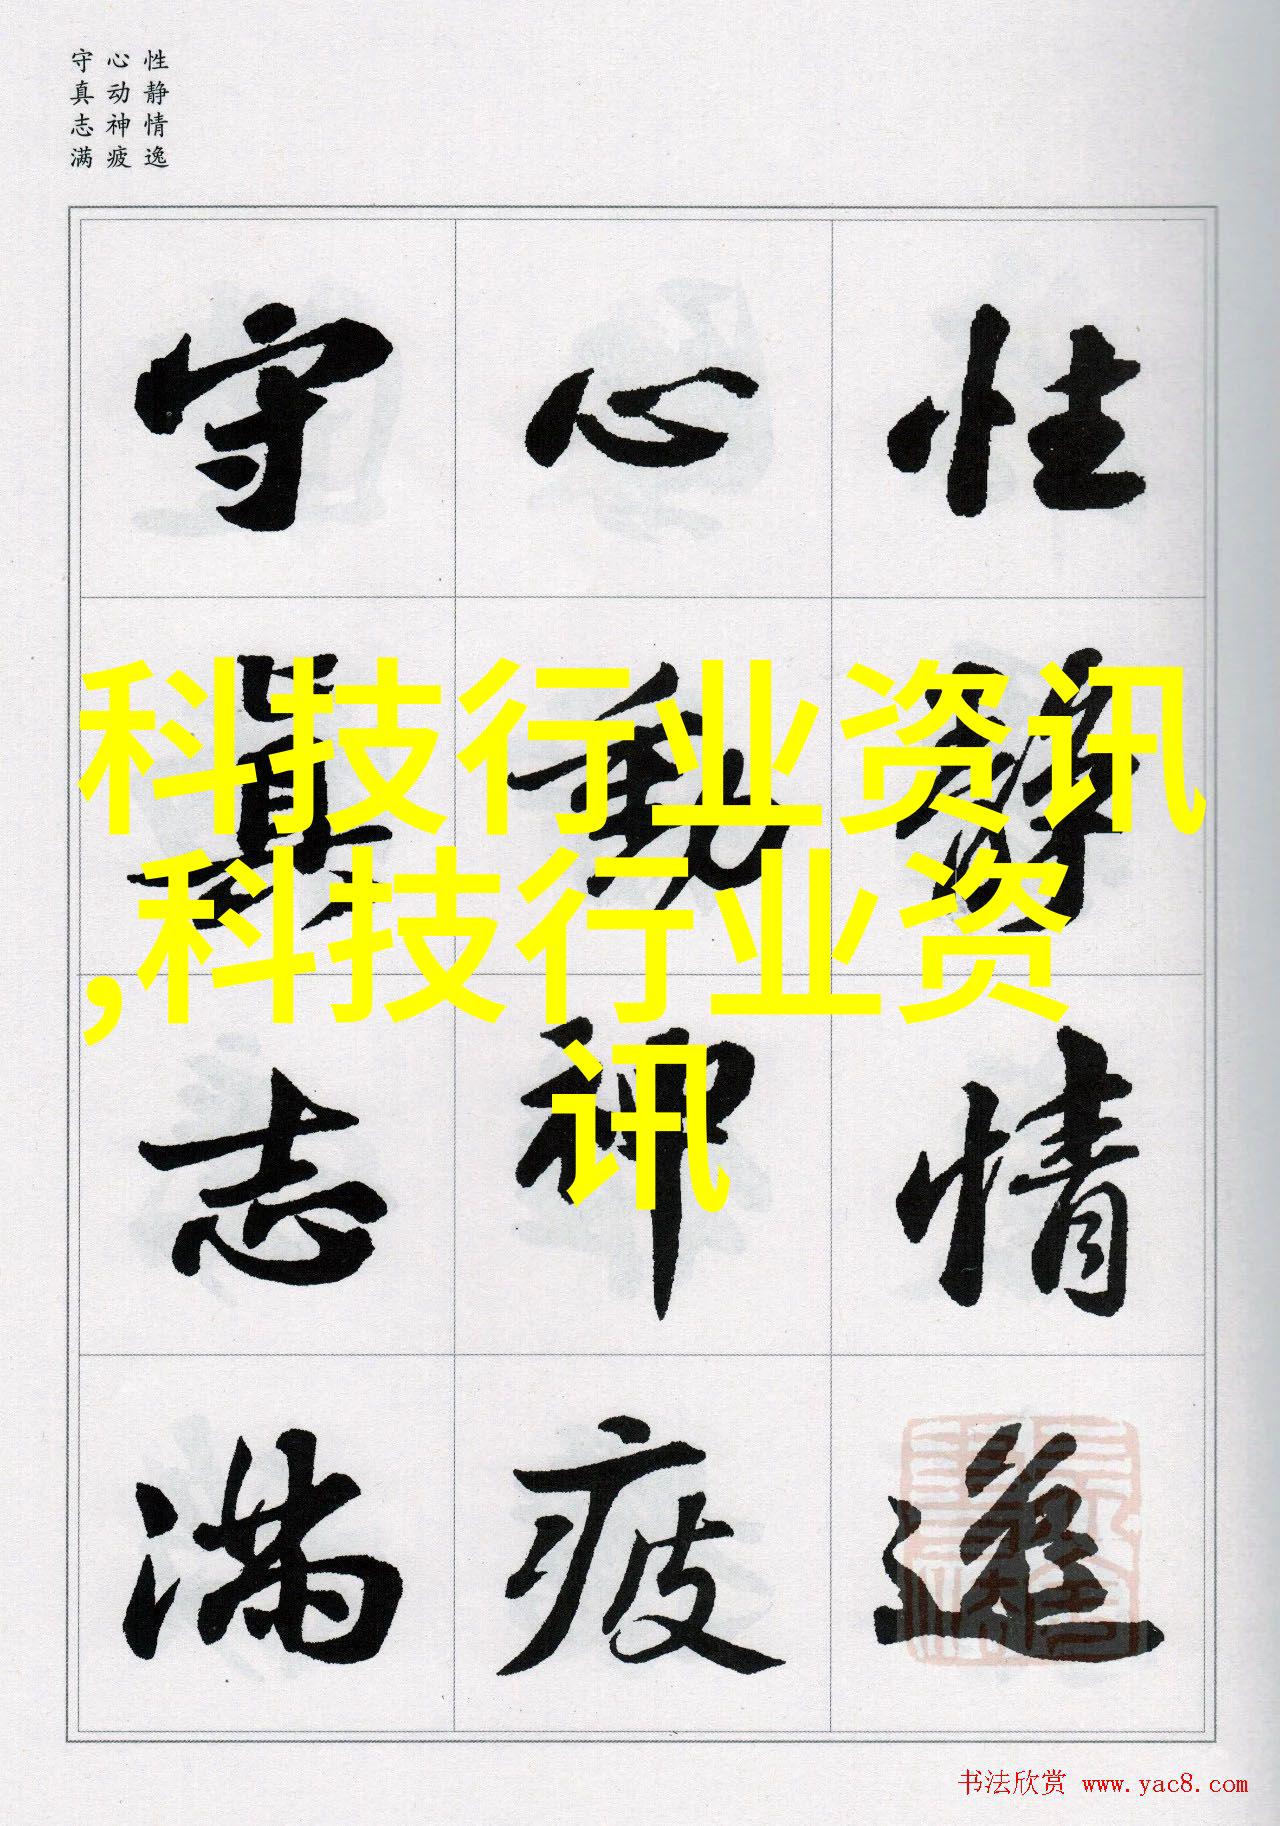 性静情逸
心动神疲
守真志满
性靜情逸
心動神疲
守真志满
科技行业资讯
,科技行业资
讯
书法欣赏 www.yac8.com